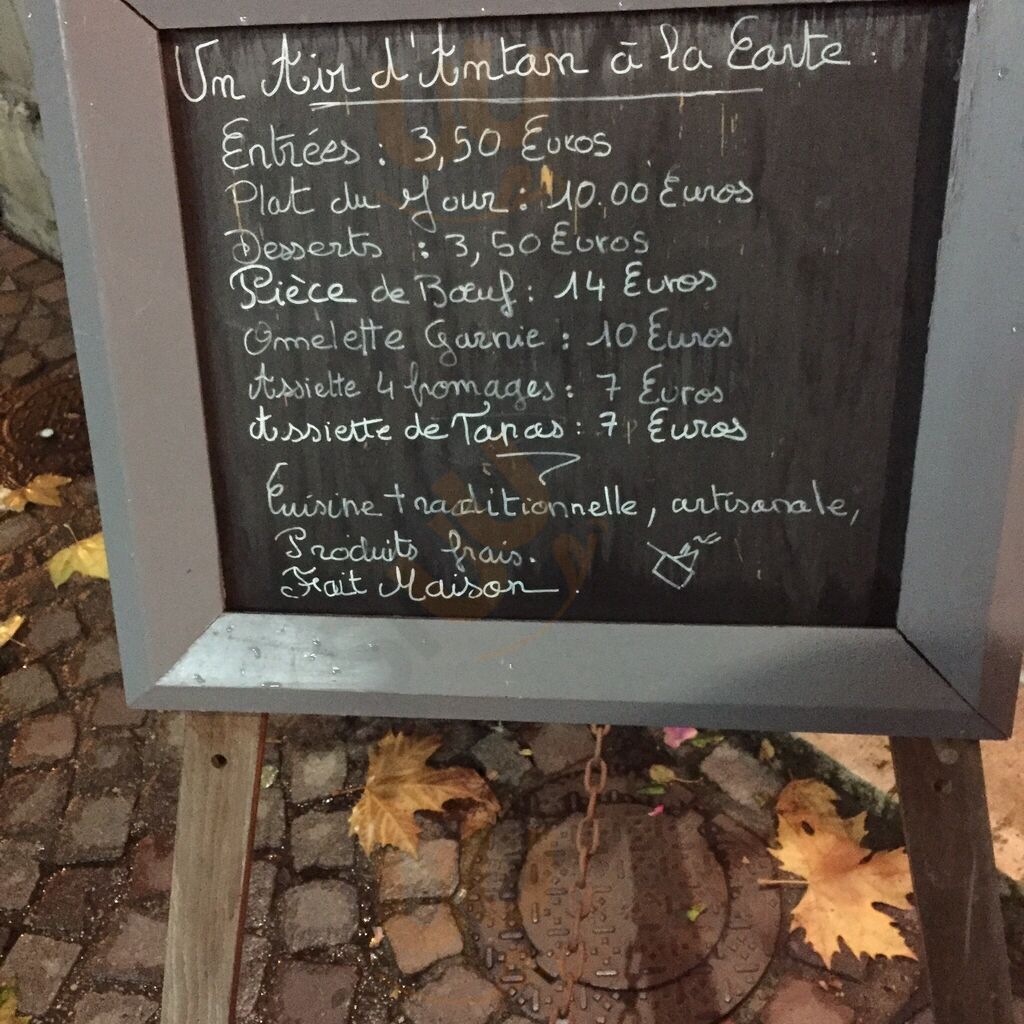 Un Air d'Antan à la Carte :
Entrées : 3,50 Euros
Plat du Jour : 10.00 Euros
Desserts : 3,50 Euros
Pièce de Bœuf : 14 Euros
Omelette Garnie : 10 Euros
Assiette 4 fromages : 7 Euros
Assiette de Tapas : 7 Euros
Cuisine traditionnelle, artisanale,
Produits frais.
Fait Maison.